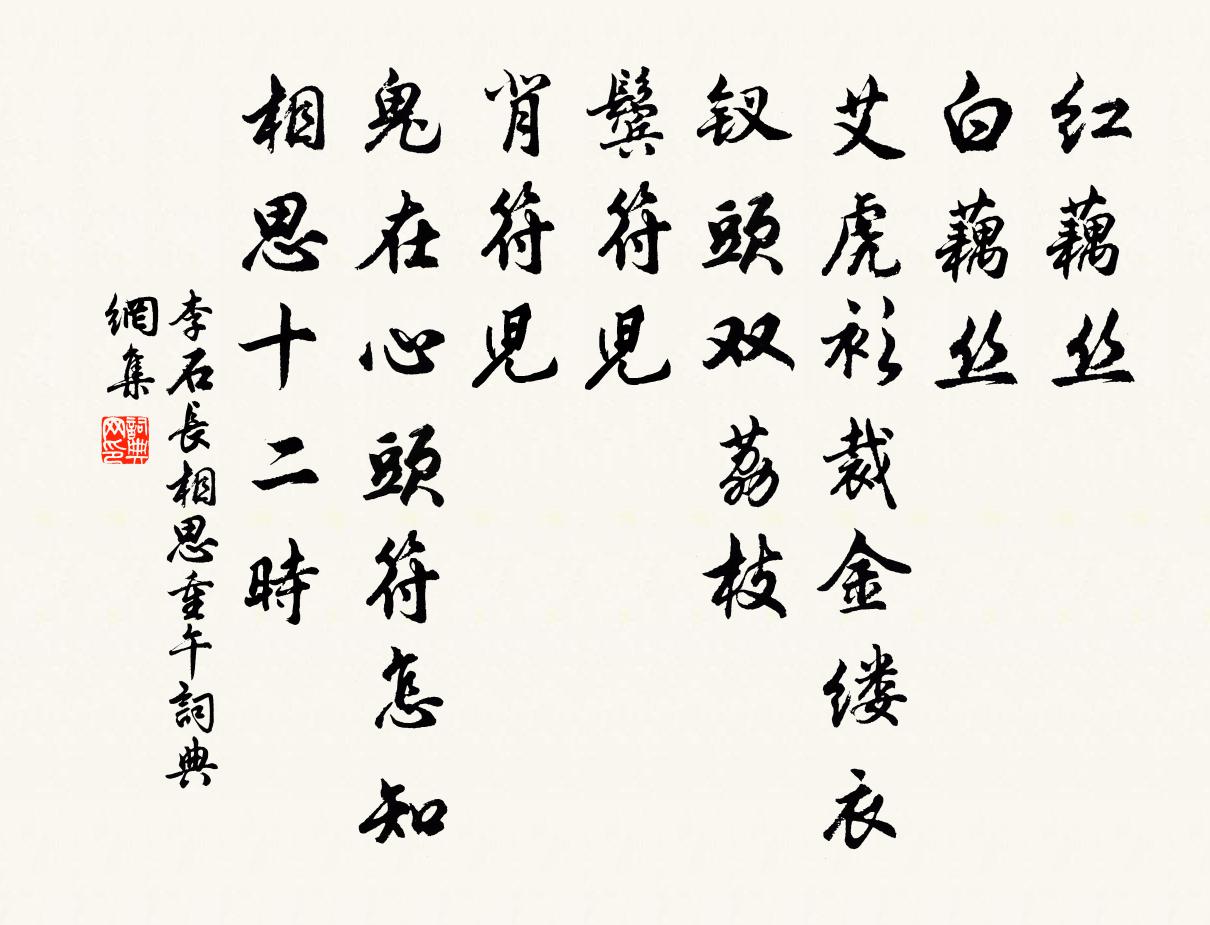 红藕丝
白藕丝
艾虎衫裁金缕衣
钗頭双荔枝
鬓符児
背符児
鬼在心頭符怎知
相思十二時
李石長相思重午詞典
網集
詞典
网印